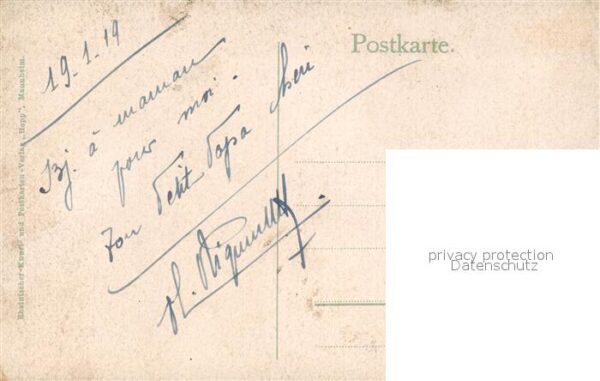 Postkarte.
19.1.19
Bj. à maman
pour moi.
Ton Petit Papa chéri
Rheinischer Kunst- und Postkarten-Verlag „Hepp", Mannheim.
privacy protection
Datenschutz